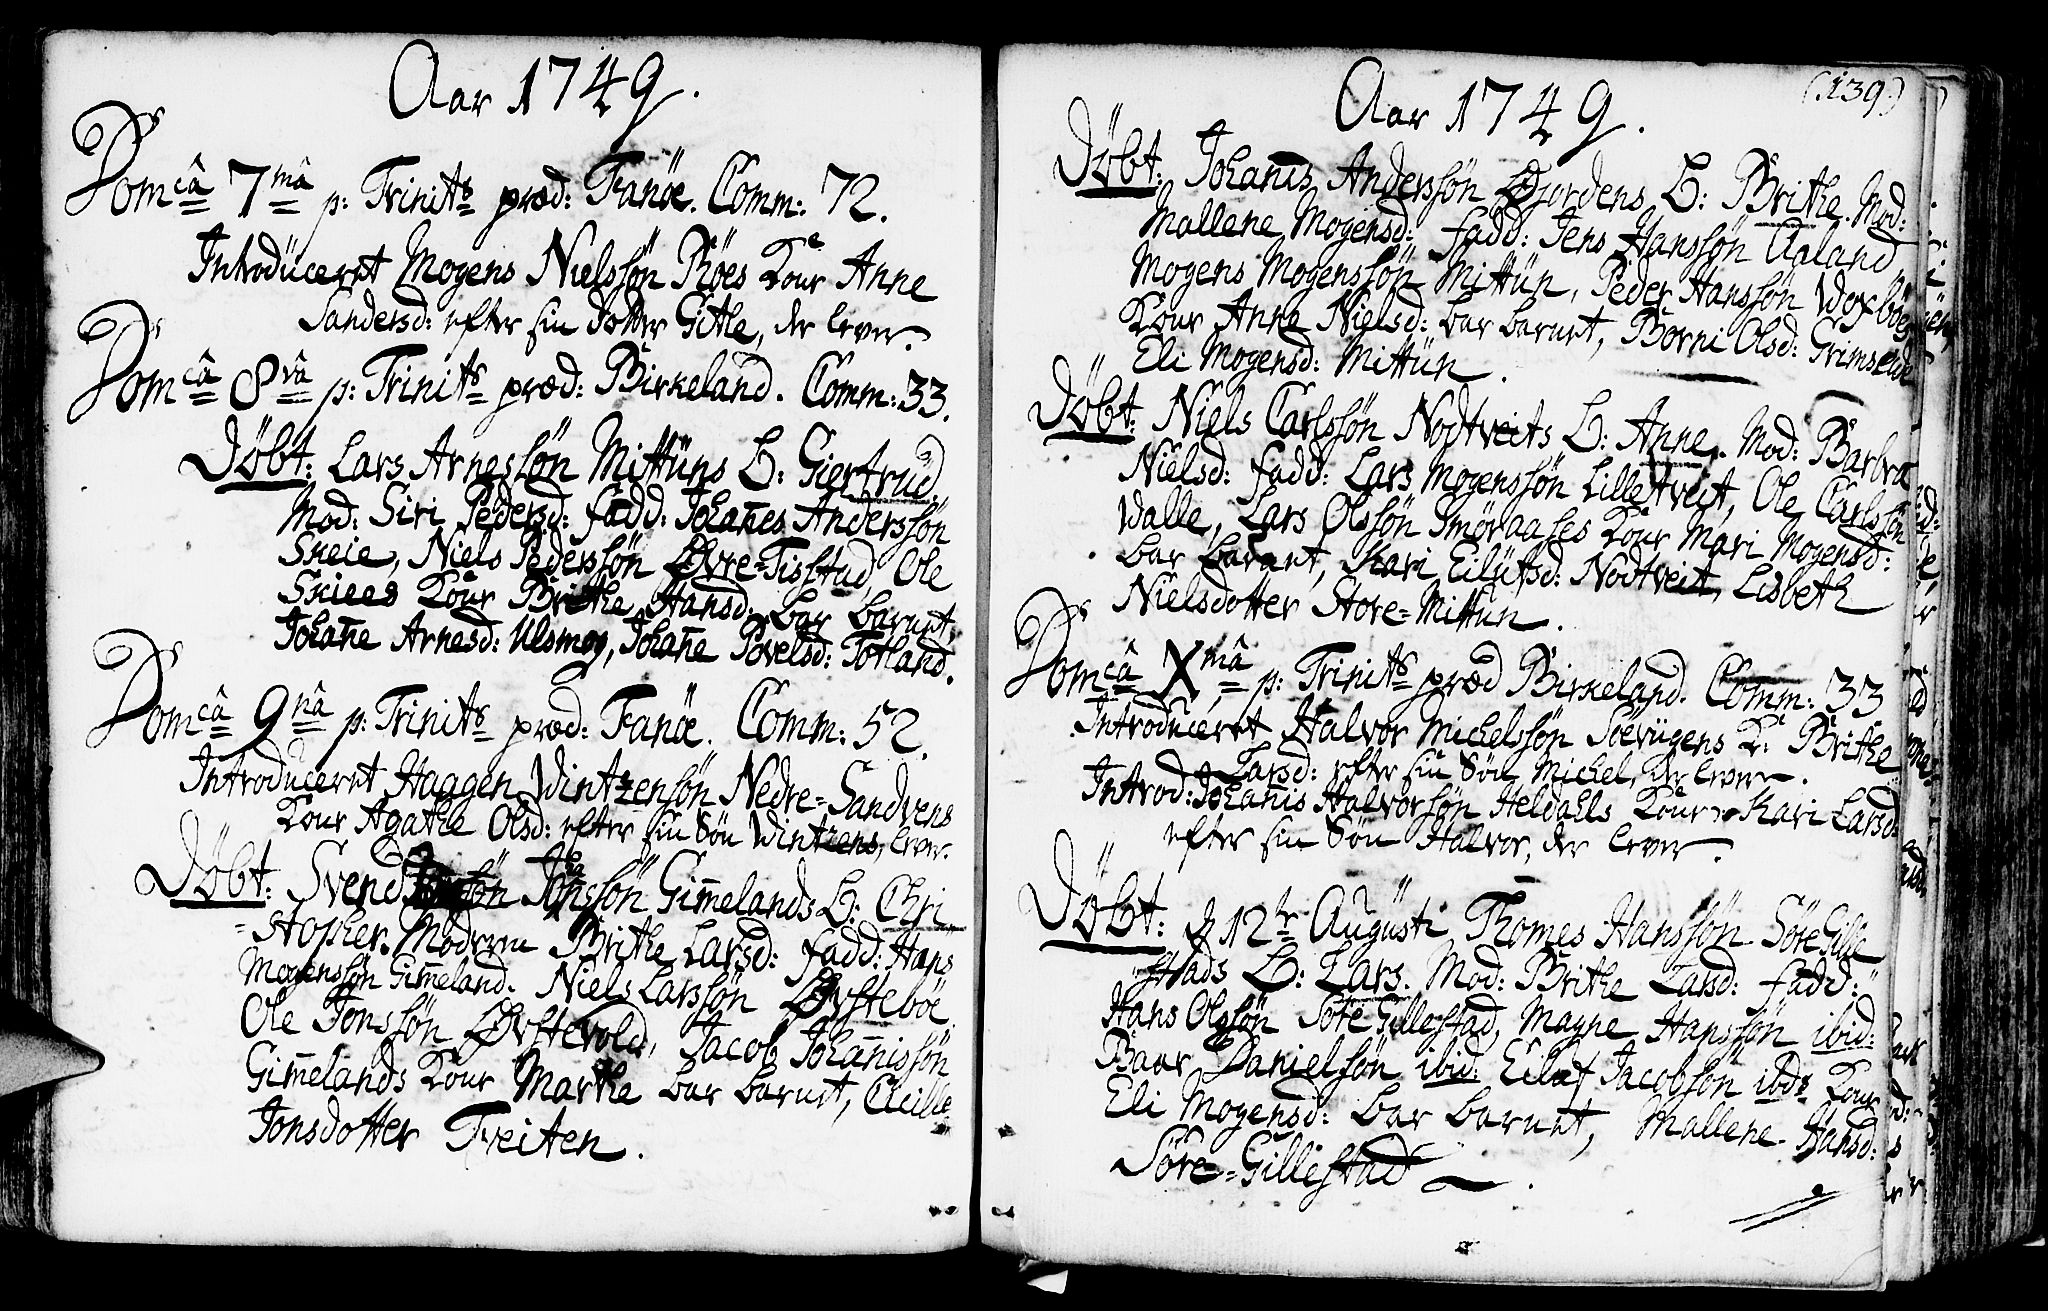 Aar 1749.
Domcâ 7mâ p: Trinits præd: Fanöe. Comm: 72.
Introduceret Mogens Nielssön Röes Kone Anne
Sandersd: efter sin Dotter Githe, der lever.
Domcâ 8vâ p: Trinits præd: Birkeland. Comm: 33.
Döbt: Lars Arnessön Mittüns B: Giertrud.
Mod: Siri Pedersd: fadd: Johanes Anderssön
Skeie, Niels Pederssön Øvre=Tisstad, Ole
Skiees Kone Brithe Hansd: bar barnet,
Johane Arnesd: Ulsmog, Johane Povelsd: Totland.
Domcâ 9nâ p: Trinits præd: Fanöe. Comm: 52.
Introduceret Haagen Wintzensön Nedre=Sandvens
Kone Agathe Olsd: efter sin Sön Wintzens, lever.
Döbt: Svend Johanssön Gimelands B: Chri
=stopher. Moderen Brithe Larsd: fadd: Hans
Mogenssön Gimeland. Niels Larssön Øvsteböe
Ole Jonssön Øvstevold, Jacob Johanissön
Gimelands Kone Marthe bar barnet, Cicilie
Jonsdotter Tveiten.
(139)
Aar 1749.
Döbt: Johanis Anderssön Gjordens B: Brithe. Mod:
Mallene Mogensd: fadd: Jens Hanssön Aaland
Mogens Mogenssön Mittün, Peder Hanssön
Kone Anne Nielsd: bar barnet, Börni Olsd: Grimseide
Eli Mogensd: Mittün.
Döbt: Niels Carlssön Nodtveits B: Anne. Mod: Barbra
Nielsd: fadd: Lars Mogenssön Lilletveit, Ole Carlssön
Walle, Lars Olssön Smöraases Kone Mari Mogensd:
bar barnet, Kari Eilüfsd: Nodtveit, Lisbeth
Nielsdotter Store=Mittün.
Domcâ Xmâ p: Trinits præd Birkeland. Comm: 33
Introduceret Halvor Michelssön Söevügens K: Brithe
Larsd: efter sin Sön Michel, der lever.
Introd: Johanis Halvorsön Heldahls Kone Kari Larsd:
efter sin Sön Halvor, der lever.
Döbt: d 12te Augusti Thomes Hanssön SöreGille
stads B: Lars. Mod: Brithe Larsd: fadd:
Hans Olssön SöreGillestad, Magne Hanssön ibid:
Baar Danielsön ibid: Eiluf Jacobsön ibd: Kone
Eli Mogensd: bar barnet, Mallene Hansd:
Söre=Gillestad.